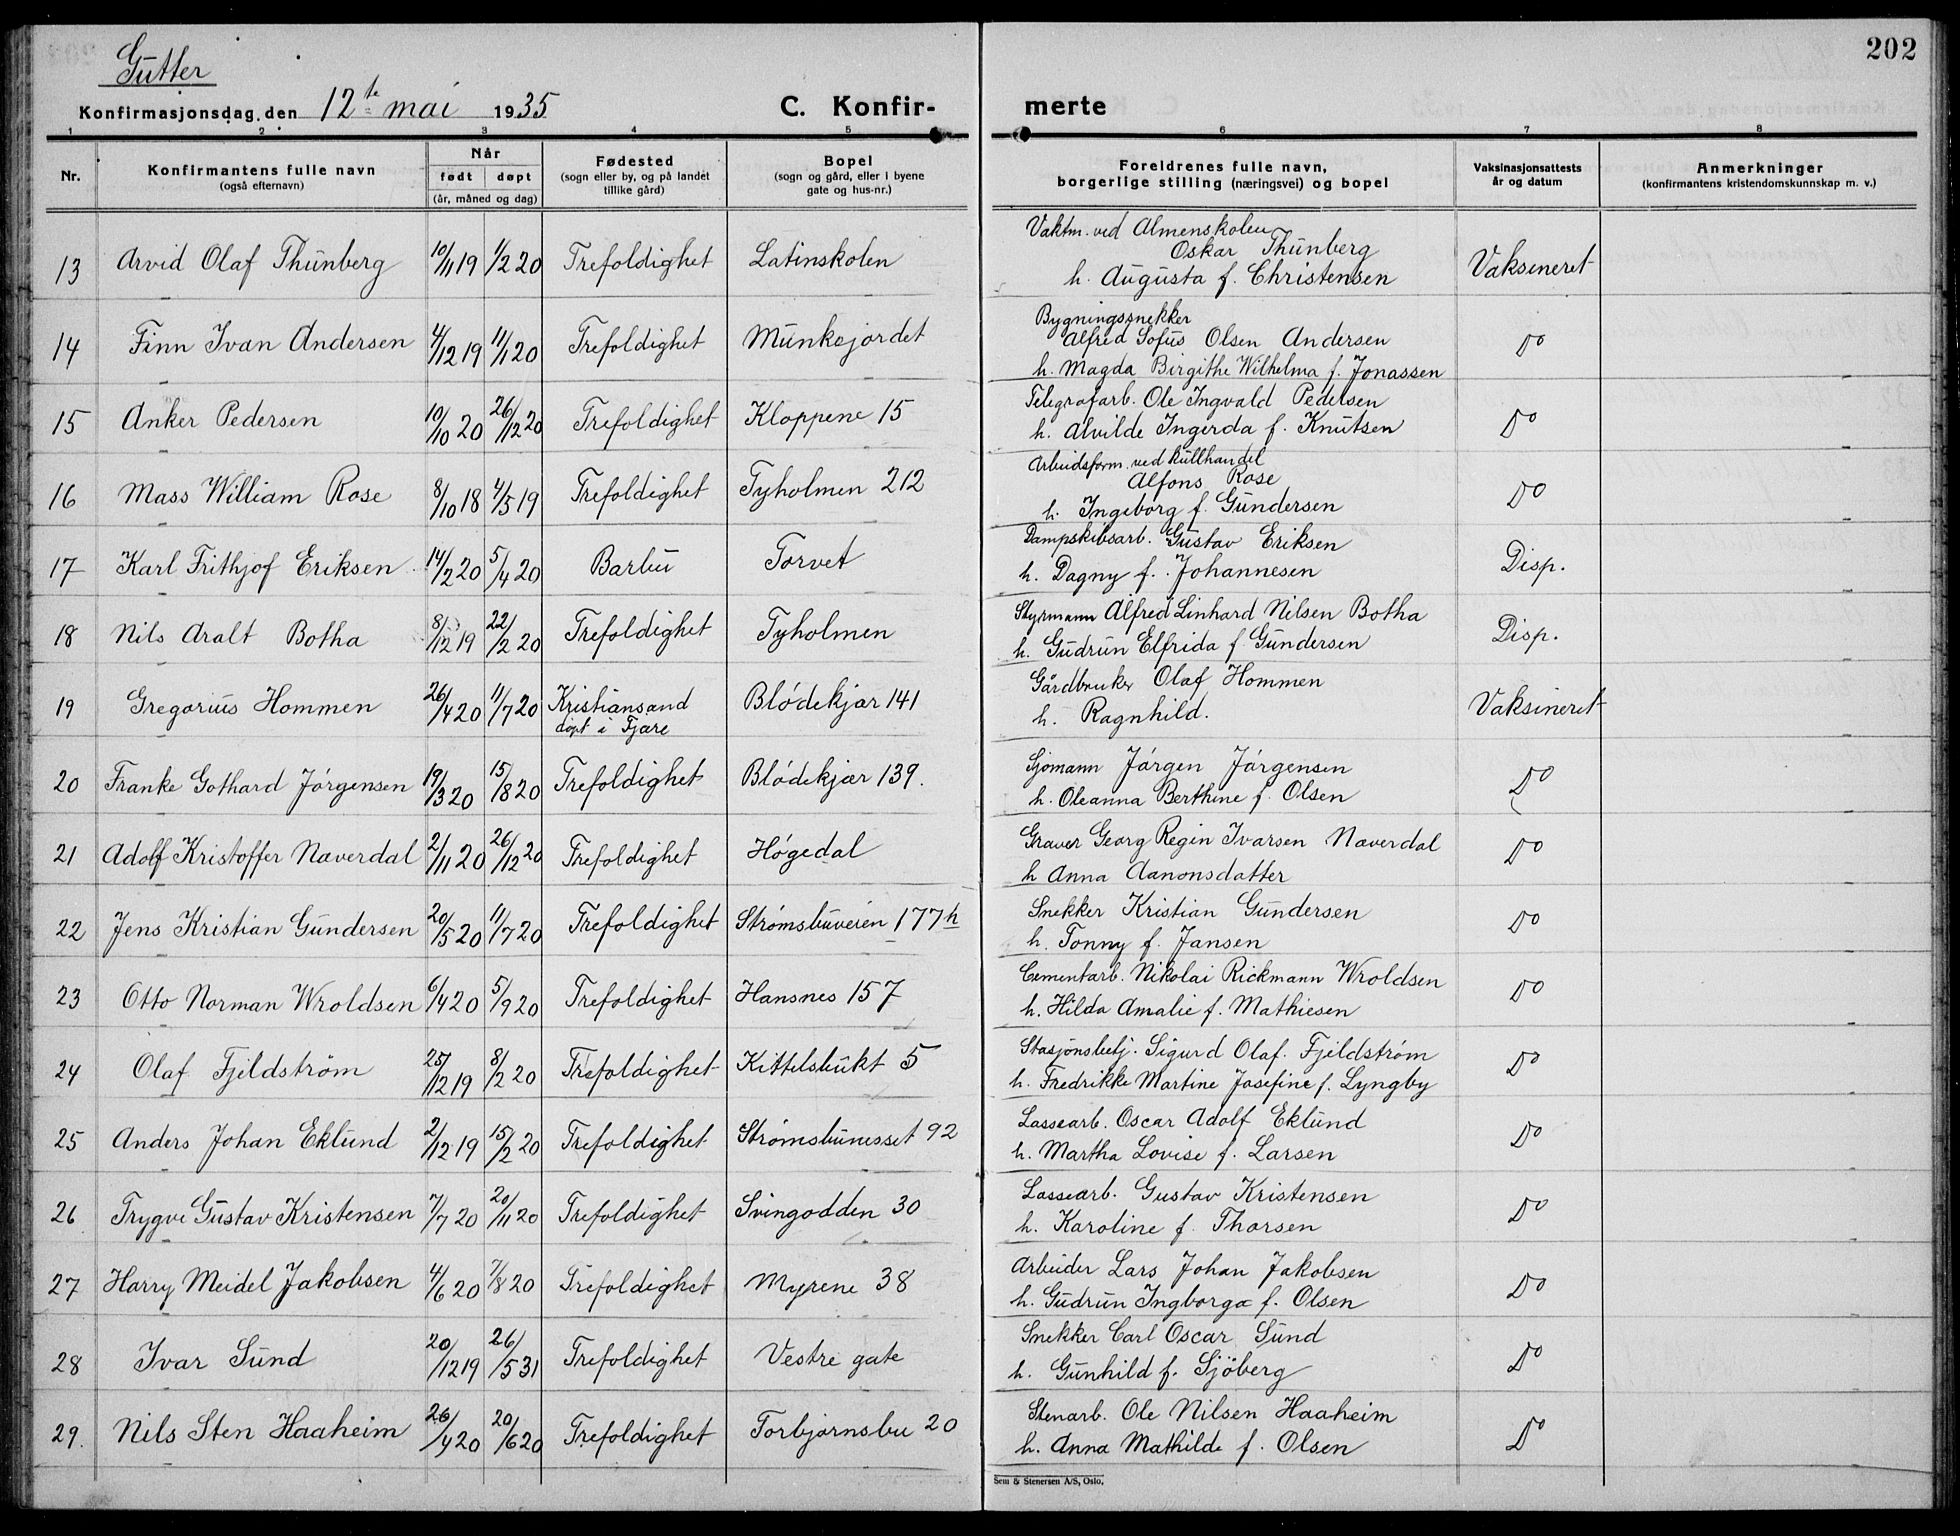 202
Gutter
Konfirmasjonsdag den 12te mai 1935
C. Konfir-
merte
1 2 3 4 5 6 7 8
Nr.
Konfirmantens fulle navn
(også efternavn)
Når
født døpt
(år, måned og dag)
Fødested
(sogn eller by, og på landet
tillike gård)
Bopel
(sogn og gård, eller i byene
gate og hus-nr.)
Foreldrenes fulle navn,
borgerlige stilling (næringsvei) og bopel
Vaksinasjonsattests
år og datum
Anmerkninger
(konfirmantens kristendomskunnskap m. v.)
Vaktm. ved Almenskolen
Oskar Thünberg
13 Arvid Olaf Thünberg 10/11 19 1/2 20 Trefoldighet Latinskolen h. Augusta f. Christensen Vaksineret
Bygningssnekker
Alfred Sofus Olsen Andersen
14 Finn Ivan Andersen 4/12 19 11/1 20 Trefoldighet Munkejordet h. Magda Birgithe Wilhelma f. Jonassen Do
Telegrafarb. Ole Ingvald Pedersen
15 Anker Pedersen 10/10 20 26/12 20 Trefoldighet Kloppene 15 h. Alvilde Ingerda f. Knutsen Do
Arbeidsform. ved kullhandel
Alfons Rose
16 Mass William Rose 8/10 18 4/5 19 Trefoldighet Tyholmen 212 h. Ingeborg f. Gundersen Do
Dampskibsarb. Gustav Eriksen
17 Karl Frithjof Eriksen 14/2 20 5/4 20 Barbu Torvet h. Dagny f. Johannesen Disp.
Styrmann Alfred Linhard Nilsen Botha
18 Nils Aralt Botha 8/12 19 22/2 20 Trefoldighet Tyholmen h. Gudrun Elfrida f Gundersen Disp.
Gårdbruker Olaf Hommen
19 Gregorius Hommen 26/4 20 11/7 20 Kristiansand Blödekjær 141 h. Ragnhild. Vaksineret
døpt i Fjære
Sjømann Jörgen Jörgensen
20 Franke Gothard Jörgensen 19/3 20 15/8 20 Trefoldighet Blödekjær 139. h. Oleanna Berthine f. Olsen Do
Graver Georg Regin Ivarsen Naverdal
21 Adolf Kristoffer Naverdal 2/11 20 26/12 20 Trefoldighet Høgedal h Anna Aanonsdatter Do
Snekker Kristian Gundersen
22 Jens Kristian Gundersen 20/5 20 11/7 20 Trefoldighet Strømsbuveien 177h h. Tonny f. Jansen Do
Cementarb. Nikolai Rickmann Wroldsen
23 Otto Norman Wroldsen 6/4 20 5/9 20 Trefoldighet Hansnes 157 h. Hilda Amalie f. Mathiesen Do
Stasjonsbetj. Sigurd Olaf Fjeldstrøm
24 Olaf Fjeldstrøm 25/12 19 8/2 20 Trefoldighet Kittelsbukt 5 h. Fredrikke Martine Josefine f. Lyngby Do
Lassearb. Oscar Adolf Eklund
25 Anders Johan Eklund 2/12 19 15/2 20 Trefoldighet Strømsbunesset 92 h. Martha Lovise f. Larsen Do
Lassearb. Gustav Kristensen
26 Trygve Gustav Kristensen 7/7 20 20/11 20 Trefoldighet Svingodden 30 h. Karoline f. Thorsen Do
Arbeider Lars Johan Jakobsen
27 Harry Meidel Jakobsen 4/6 20 7/8 20 Trefoldighet Myrene 38 h. Gudrun Ingborga f. Olsen Do
Snekker Carl Oscar Sund
28 Ivar Sund 20/12 19 26/5 31 Trefoldighet Vestre gate h. Gunhild f. Sjöberg Do
Stenarb. Ole Nilsen Haaheim
29. Nils Sten Haaheim 26/4 20 20/6 20 Trefoldighet Torbjørnsbu 20 h. Anna Mathilde f. Olsen Do
Sem & Stenersen A/S, Oslo.